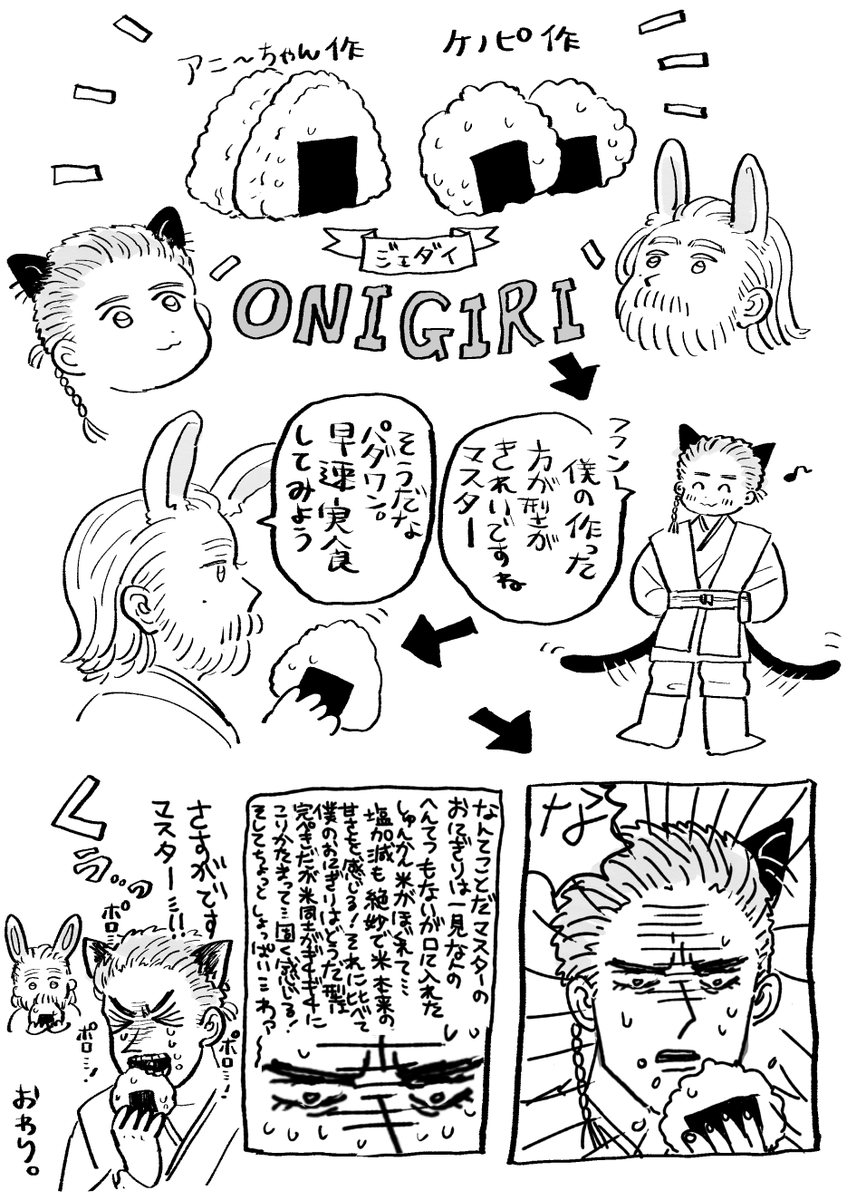 アニ〜ちゃん作
ケノピ作
ジェダイ
ONIGIRI
フフン〜
僕の作った
方が型が
きれいですね
マスター
♪
そうだな
パダワン。
早速実食
してみよう
な
なんてことだマスターの
おにぎりは一見なんの
へんてつもないが口に入れた
しゅんかん米がほぐれて…
塩加減も絶妙で米本来の
甘さを感じる!それに比べて
僕のおにぎりはどうだ型は
完ぺきだが米同士がギチギチに
こりかたまって…固く感じる!
そしてちょっとしょっぱい…わっ
くうっっ
さすがです
マスター…!!
ポロ…
ポロ…!
ポロ…!
おわり。